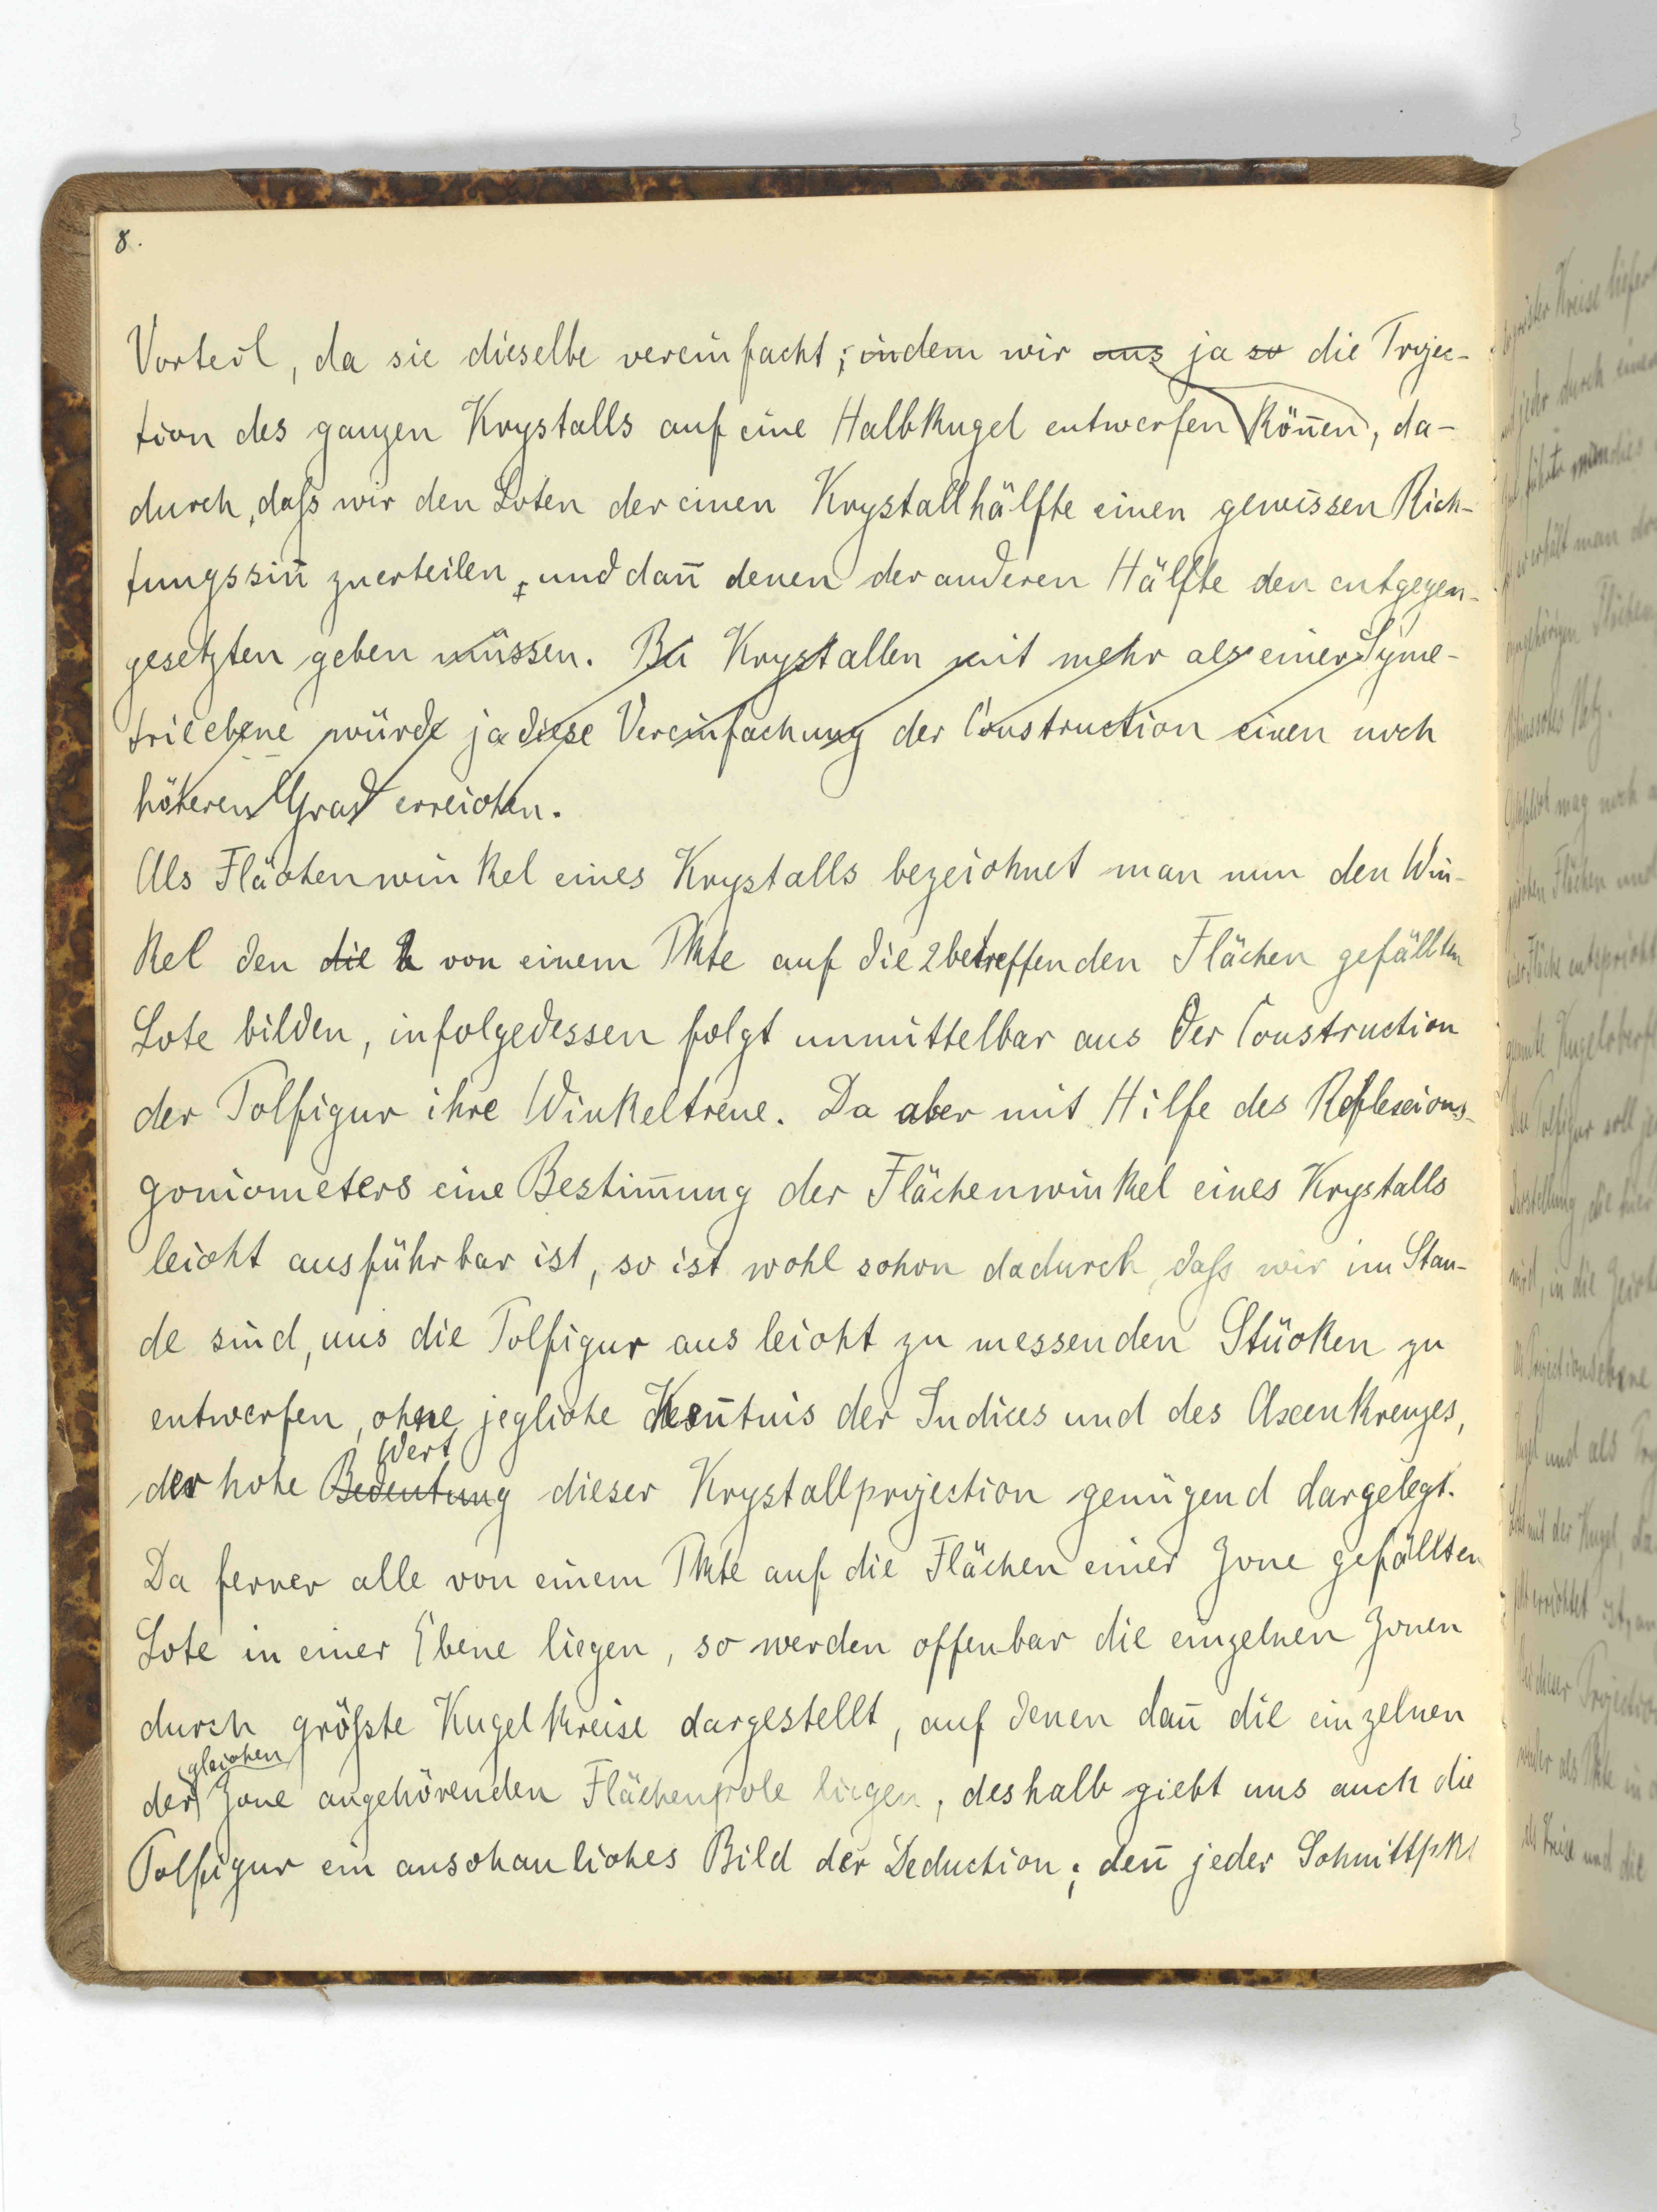 8.
Vorteil, da sie dieselbe vereinfacht; indem wir uns ja so die Projec-
tion des ganzen Krystalls auf eine Halbkugel entwerfen Kön̄en, da-
durch, daſs wir den Loten der einen Krystallhälfte einen gewissen Rich-
tungssin̄ zuerteilen, und dan̄ denen der anderen Hälfte den entgegen-
gesetzten geben müssen. Bei Krystallen mit mehr als einer Sym̄e-
trieebene würde ja diese Vereinfachung der Construction einen noch
höheren Grad erreichen.
Als Flächenwinkel eines Krystalls bezeichnet man nun den Win-
kel den die 2 von einem Pkte auf die 2 betreffenden Flächen gefällten
Lote bilden, infolgedessen folgt unmittelbar aus der Construction
der Polfigur ihre Winkeltreue. Da aber mit Hilfe des Reflexions-
goniometers eine Bestim̄ung der Flächenwinkel eines Krystalls
leicht ausführbar ist, so ist wohl schon dadurch, daſs wir im Stan-
de sind, uns die Polfigur aus leicht zu messenden Stücken zu
entwerfen, ohne jegliche Ken̄tnis der Indices und des Axenkreuzes,
der hohe Bedeutung Wert dieser Krystallprojection genügend dargelegt.
Da ferner alle von einem Pkte auf die Flächen einer Zone gefällten
Lote in einer Ebene liegen, so werden offenbar die einzelnen Zonen
durch größte Kugelkreise dargestellt, auf denen dan̄ die einzelnen
der gleichen Zone angehörenden Flächenpole liegen, deshalb giebt uns auch die
Polfigur ein anschauliches Bild der Deduction; den̄ jeder Schnittpkt